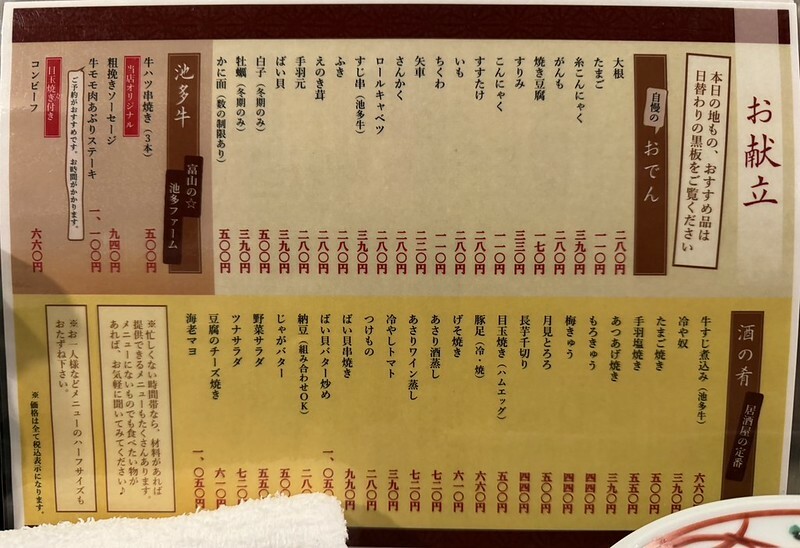 お献立
本日の地もの、おすすめ品は
日替わりの黒板をご覧ください
自慢の おでん
大根 二八〇円
たまご 一一〇円
糸こんにゃく 三九〇円
がんも 二八〇円
焼き豆腐 一七〇円
すりみ 三三〇円
こんにゃく 一一〇円
すすたけ 二八〇円
いも 二八〇円
ちくわ 一一〇円
矢車 二二〇円
さんかく 二八〇円
ロールキャベツ 二八〇円
すじ串(池多牛) 三九〇円
ふき 二八〇円
えのき茸 二八〇円
手羽元 二八〇円
ばい貝 三九〇円
白子(冬期のみ) 五五〇円
牡蠣(冬期のみ) 三九〇円
かに面(数の制限あり) 五〇〇円
池多牛 富山の☆
池多ファーム
牛ハツ串焼き(3本) 五〇〇円
当店オリジナル
粗挽きソーセージ 九四〇円
牛モモ肉あぶりステーキ 一、一〇〇円
ご予約がおすすめです。お時間がかかります。
目玉焼き付き
コンビーフ 六六〇円
酒の肴 居酒屋の定番
牛すじ煮込み(池多牛) 六六〇
冷や奴 三九〇円
たまご焼き 五〇〇円
手羽塩焼き 五五〇円
あつあげ焼き 三九〇円
もろきゅう 四四〇円
梅きゅう 四四〇円
月見とろろ 五五〇円
長芋千切り 四四〇円
目玉焼き(ハムエッグ) 五〇〇円
豚足(冷・焼) 六六〇円
げそ焼き 六一〇円
あさり酒蒸し 七二〇円
あさりワイン蒸し 七二〇円
冷やしトマト 三九〇円
つけもの 二八〇円
ばい貝串焼き 九九〇円
ばい貝バター炒め 一、〇五〇
納豆(組み合わせOK) 二八〇
じゃがバター 五〇〇
野菜サラダ 五五〇
ツナサラダ 七二〇
豆腐のチーズ焼き 六一〇
海老マヨ 一、〇五〇
※忙しくない時間帯なら、材料があれば
提供できるメニューもたくさんあります。
メニューにないものでも食べたい物が
あれば、お気軽に聞いてみてください♪
※お一人様などメニューのハーフサイズも
おたずね下さい。
※ 価格は全て税込表示になります。